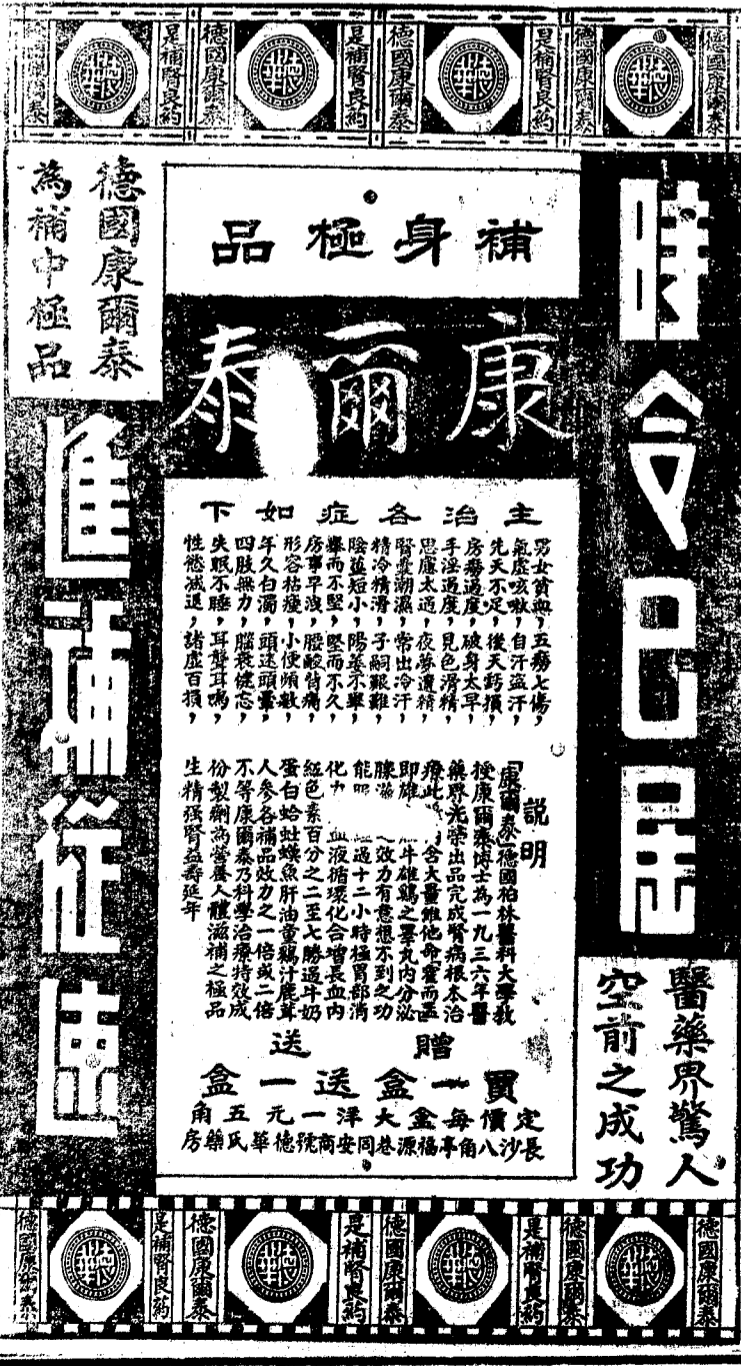 德國康爾泰
德國康爾泰
是補腎良約
德國康爾泰
是補腎良約
德國康爾泰
是補腎良約
德國康爾泰
時令已屆
醫藥界驚人
空前之成功
補身極品
康爾泰
主治各症如下
男女貧血，五癆七傷，
氣虛咳嗽，自汗盜汗，
先天不足，後天虧損，
房癆過度，破身太早，
手淫過度，見色滑精，
思慮太過，夜夢遺精，
腎囊潮濕，常出冷汗，
精冷精滑，子嗣艱難，
陰莖短小，陽萎不舉，
舉而不堅，堅而不久，
房事早洩，腰酸背痛，
形容枯瘦，小便頻數，
年久白濁，頭迷頭暈，
四肢無力，腦衰健忘，
失眠不睡，耳聾耳鳴，
性慾減退，諸虛百損，
說明
「康爾泰」德國柏林醫科大學教
授康爾泰博士為一九三六年醫
藥界光榮出品完成腎病根本治
療此 含大量維他命
即雄 牛雄鷄之睪丸內分泌
腺滋 效力有意想不到之功
能服 過十二小時極胃部消
化力 血液循環化合增長血內
紅色素百分之二至七勝過牛奶
蛋白蛤蚧蟆魚肝油童鷄汁鹿茸
人參各補品效力之一倍或二倍
不等康爾泰乃科學治療特效成
份製劑為營養人體滋補之極品
生精强腎益壽延年
贈送
買一盒送一盒
定價每盒大洋一元五角
長沙八角亭福源巷同安商號德華氏藥房
德國康爾泰
為補中極品
進補從速
德國康爾泰
德國康爾泰
是補腎良約
德國康爾泰
是補腎良約
德國康爾泰
是補腎良約
德國康爾泰